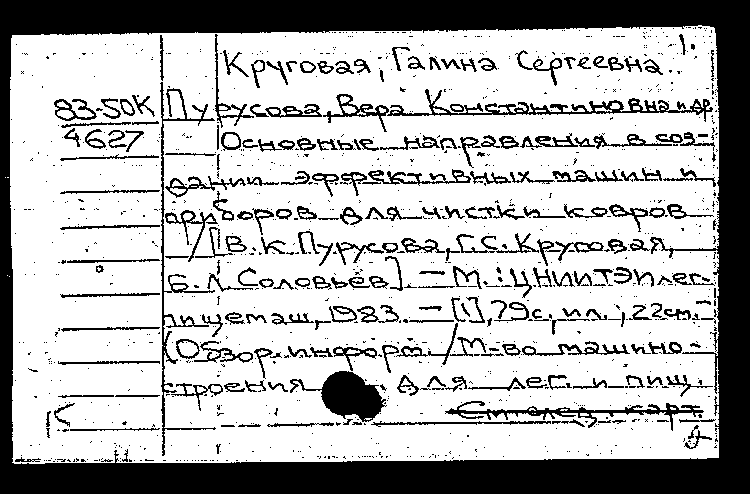 1.
Круговая, Галина Сергеевна.
83-50К Пурусова, Вера Константиновна и др.
4627 Основные направления в соз-
дании эффективных машин и
приборов для чистки ковров
/[В.К. Пурусова, Г.С. Круговая,
Б.Л. Соловьев]. — М.: ЦНИИТЭИлег-
пищемаш, 1983. — [1], 79с., ил.; 22см. —
(Обзор. информ. / М-во машино-
строения для лег. и пищ.
См. след. карт.